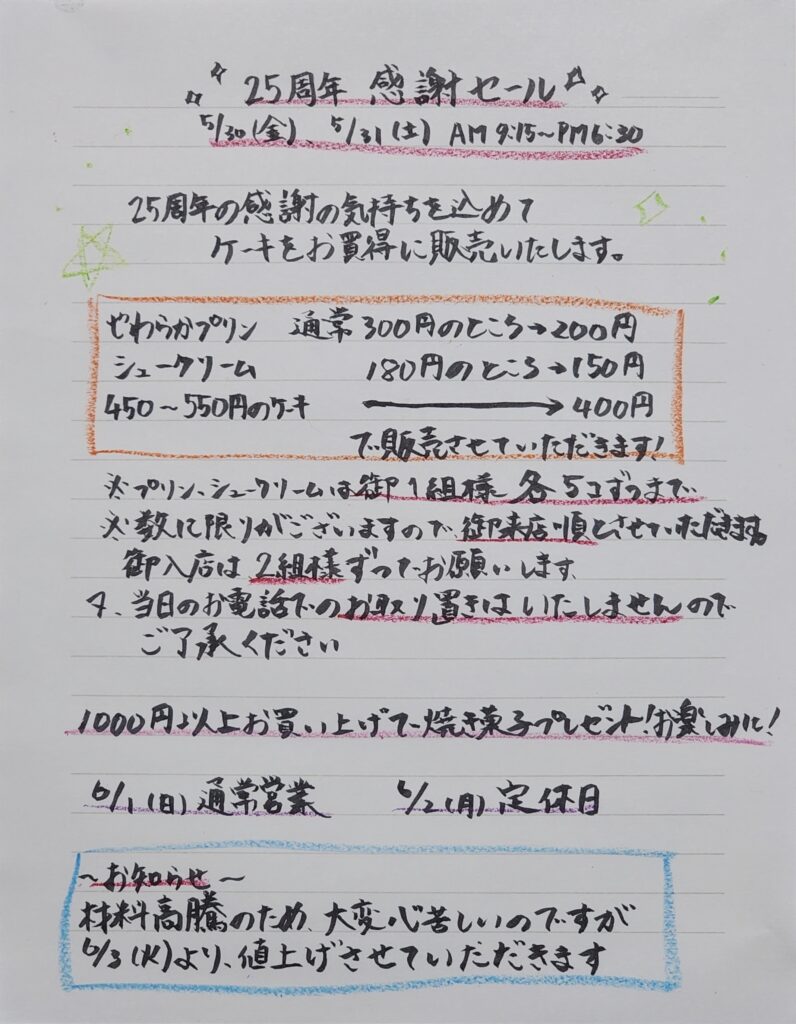 25周年 感謝セール
5/30(金)、5/31(土) AM 9:15~PM 6:30
25周年の感謝の気持ちを込めて
ケーキをお買得に販売いたします。
やわらかプリン 通常300円のところ→200円
シュークリーム 180円のところ→150円
450~550円のケーキ → 400円
で販売させていただきます!
※プリン、シュークリームは御1組様 各5コずつまで
※数に限りがございますので、御来店順とさせていただきます。
御入店は 2組様ずつでお願いします。
※、当日のお電話でのお取り置きはいたしませんので
ご了承ください
1000円以上お買い上げで焼き菓子プレゼント!お楽しみに!
6/1(日)通常営業 6/2(月)定休日
~お知らせ~
材料高騰のため、大変心苦しいのですが
6/3(火)より、値上げさせていただきます